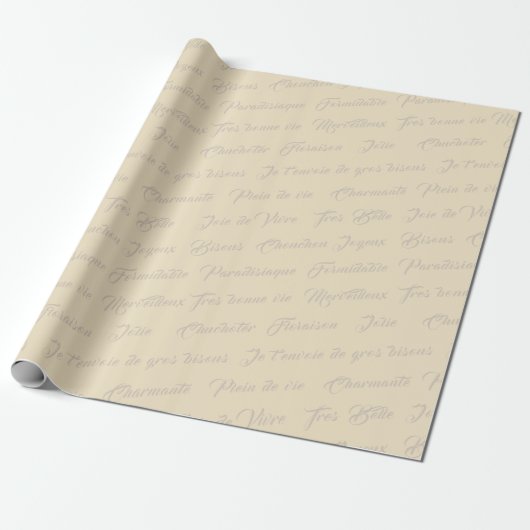 Bisous Chouchou
Joyeux
Paradisiaque Formidable
Merveilleux Très bonne vie Merveilleux Très
Jolie Chuchoter Floraison Jolie Chuchoter
Je t'envoie de gros bisous Je t'envoie de gros
Charmante Plein de vie Charmante Plein de vie
Très Belle Joie de Vivre Très Belle Joie de Vivre
Chouchou Joyeux Bisous Chouchou Joyeux Bisous
Formidable Paradisiaque Formidable Paradisiaque
Merveilleux Très bonne vie Merveilleux Très
Floraison Jolie Chuchoter Floraison Jolie
Je t'envoie de gros bisous Je t'envoie de gros bisous
Charmante Plein de vie Charmante
de Vivre Très Belle Joie
Joyeux